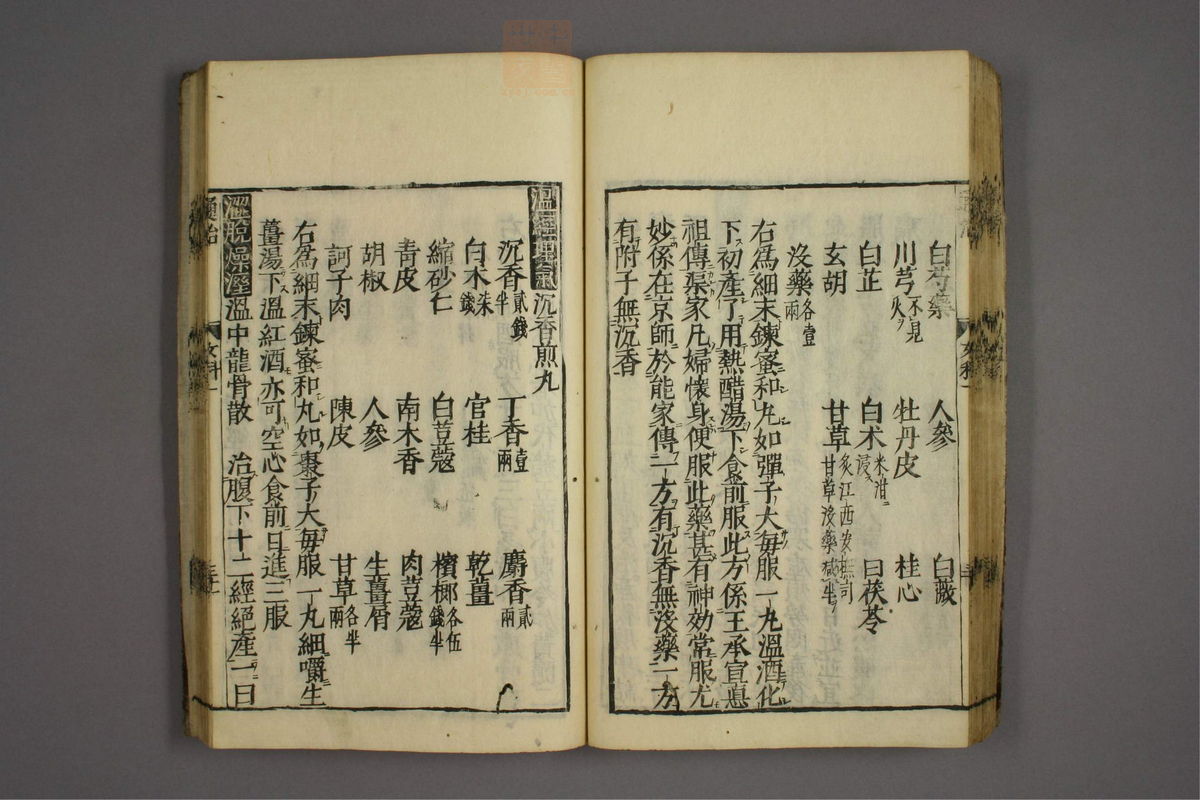 白芍藥 人參 白蘞
川芎不見火 牡丹皮 桂心
白芷 白术米泔浸 白茯苓
玄胡 甘草炙江西安撫司甘草沒藥減半
沒藥各壹兩
右為細末鍊蜜和丸如彈子大每服一丸溫酒化
下初產了用熱醋湯下食前服此方係王承宣惠
祖傳渠家凡婦懷身便服此藥甚有神効常服尤
妙係在京師於能家傳二方有沉香無沒藥一方
有附子無沉香
溫經理氣沉香煎丸
沉香貳錢半 丁香壹兩 麝香貳兩
白木柒錢 官桂 乾薑
縮砂仁 白荳蔻 檳榔各伍錢半
青皮 南木香 肉荳蔻
胡椒 人參 生薑屑
訶子肉 陳皮 甘草各半兩
右為細末鍊蜜和丸如棗子大每服一丸細嚼生
薑湯下溫紅酒亦可空心食前日進三服
澀脫燥溼溫中龍骨散 治腹下十二經絕產一曰
通治 女科一